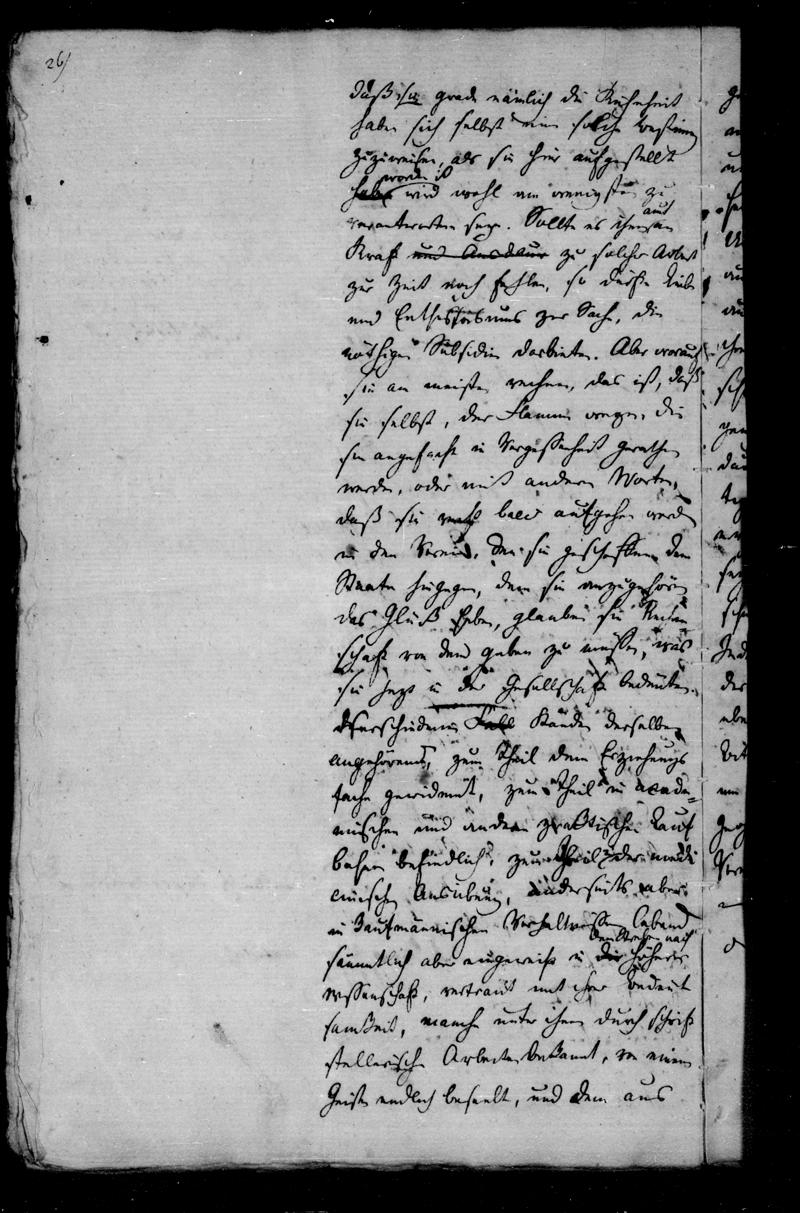 26)
daß sie grade nämlich die Kühnheit
haben sich selbst eine solche Bestimmung
zuzuweisen, als sie hier aufgestellt
worden ist
habe wird wohl am wenigsten zu
verantworten seyn. Sollte es ihnen an
auch
Kraft und Ausdauer zu solcher Arbeit
zur Zeit noch fehlen, so dürfte Liebe
und Enthusiasmus zur Sache, die
nöthigen Subsidien darbieten. Aber worauf
sie am meisten rechnen, das ist, daß
sie selbst, der Flamme wegen, die
sie angefacht in Vergessenheit gerathen
werden, oder mit andern Worten,
daß sie recht bald aufgehen werden
in den Verein, den sie geschaffen. Dem
Staate hingegen, dem sie anzugehören
das Glück haben, glauben sie Rechen
schaft von dem geben zu müssen, was
sie jetzt in der Gesellschaft bedeuten.
Verschiedenen Ständen derselben
angehörend, zum Theil dem Erziehungs
fache gewidmet, zum Theil in acade-
mischen und andern praktischen Lauf
bahnen befindlich, zum Theil der medi
cinischen Ausübung, anderseits aber
in kaufmännischen Verhältnissen lebend
sämmtlich aber eingeweiht in
dem Streben nach
die höhere
Wissenschaft, vertraut mit ihrer Bedeut
samkeit, manche unter ihnen durch schrift
stellerische Arbeiten bekannt, von einem
Geiste endlich beseelt, und dem aus